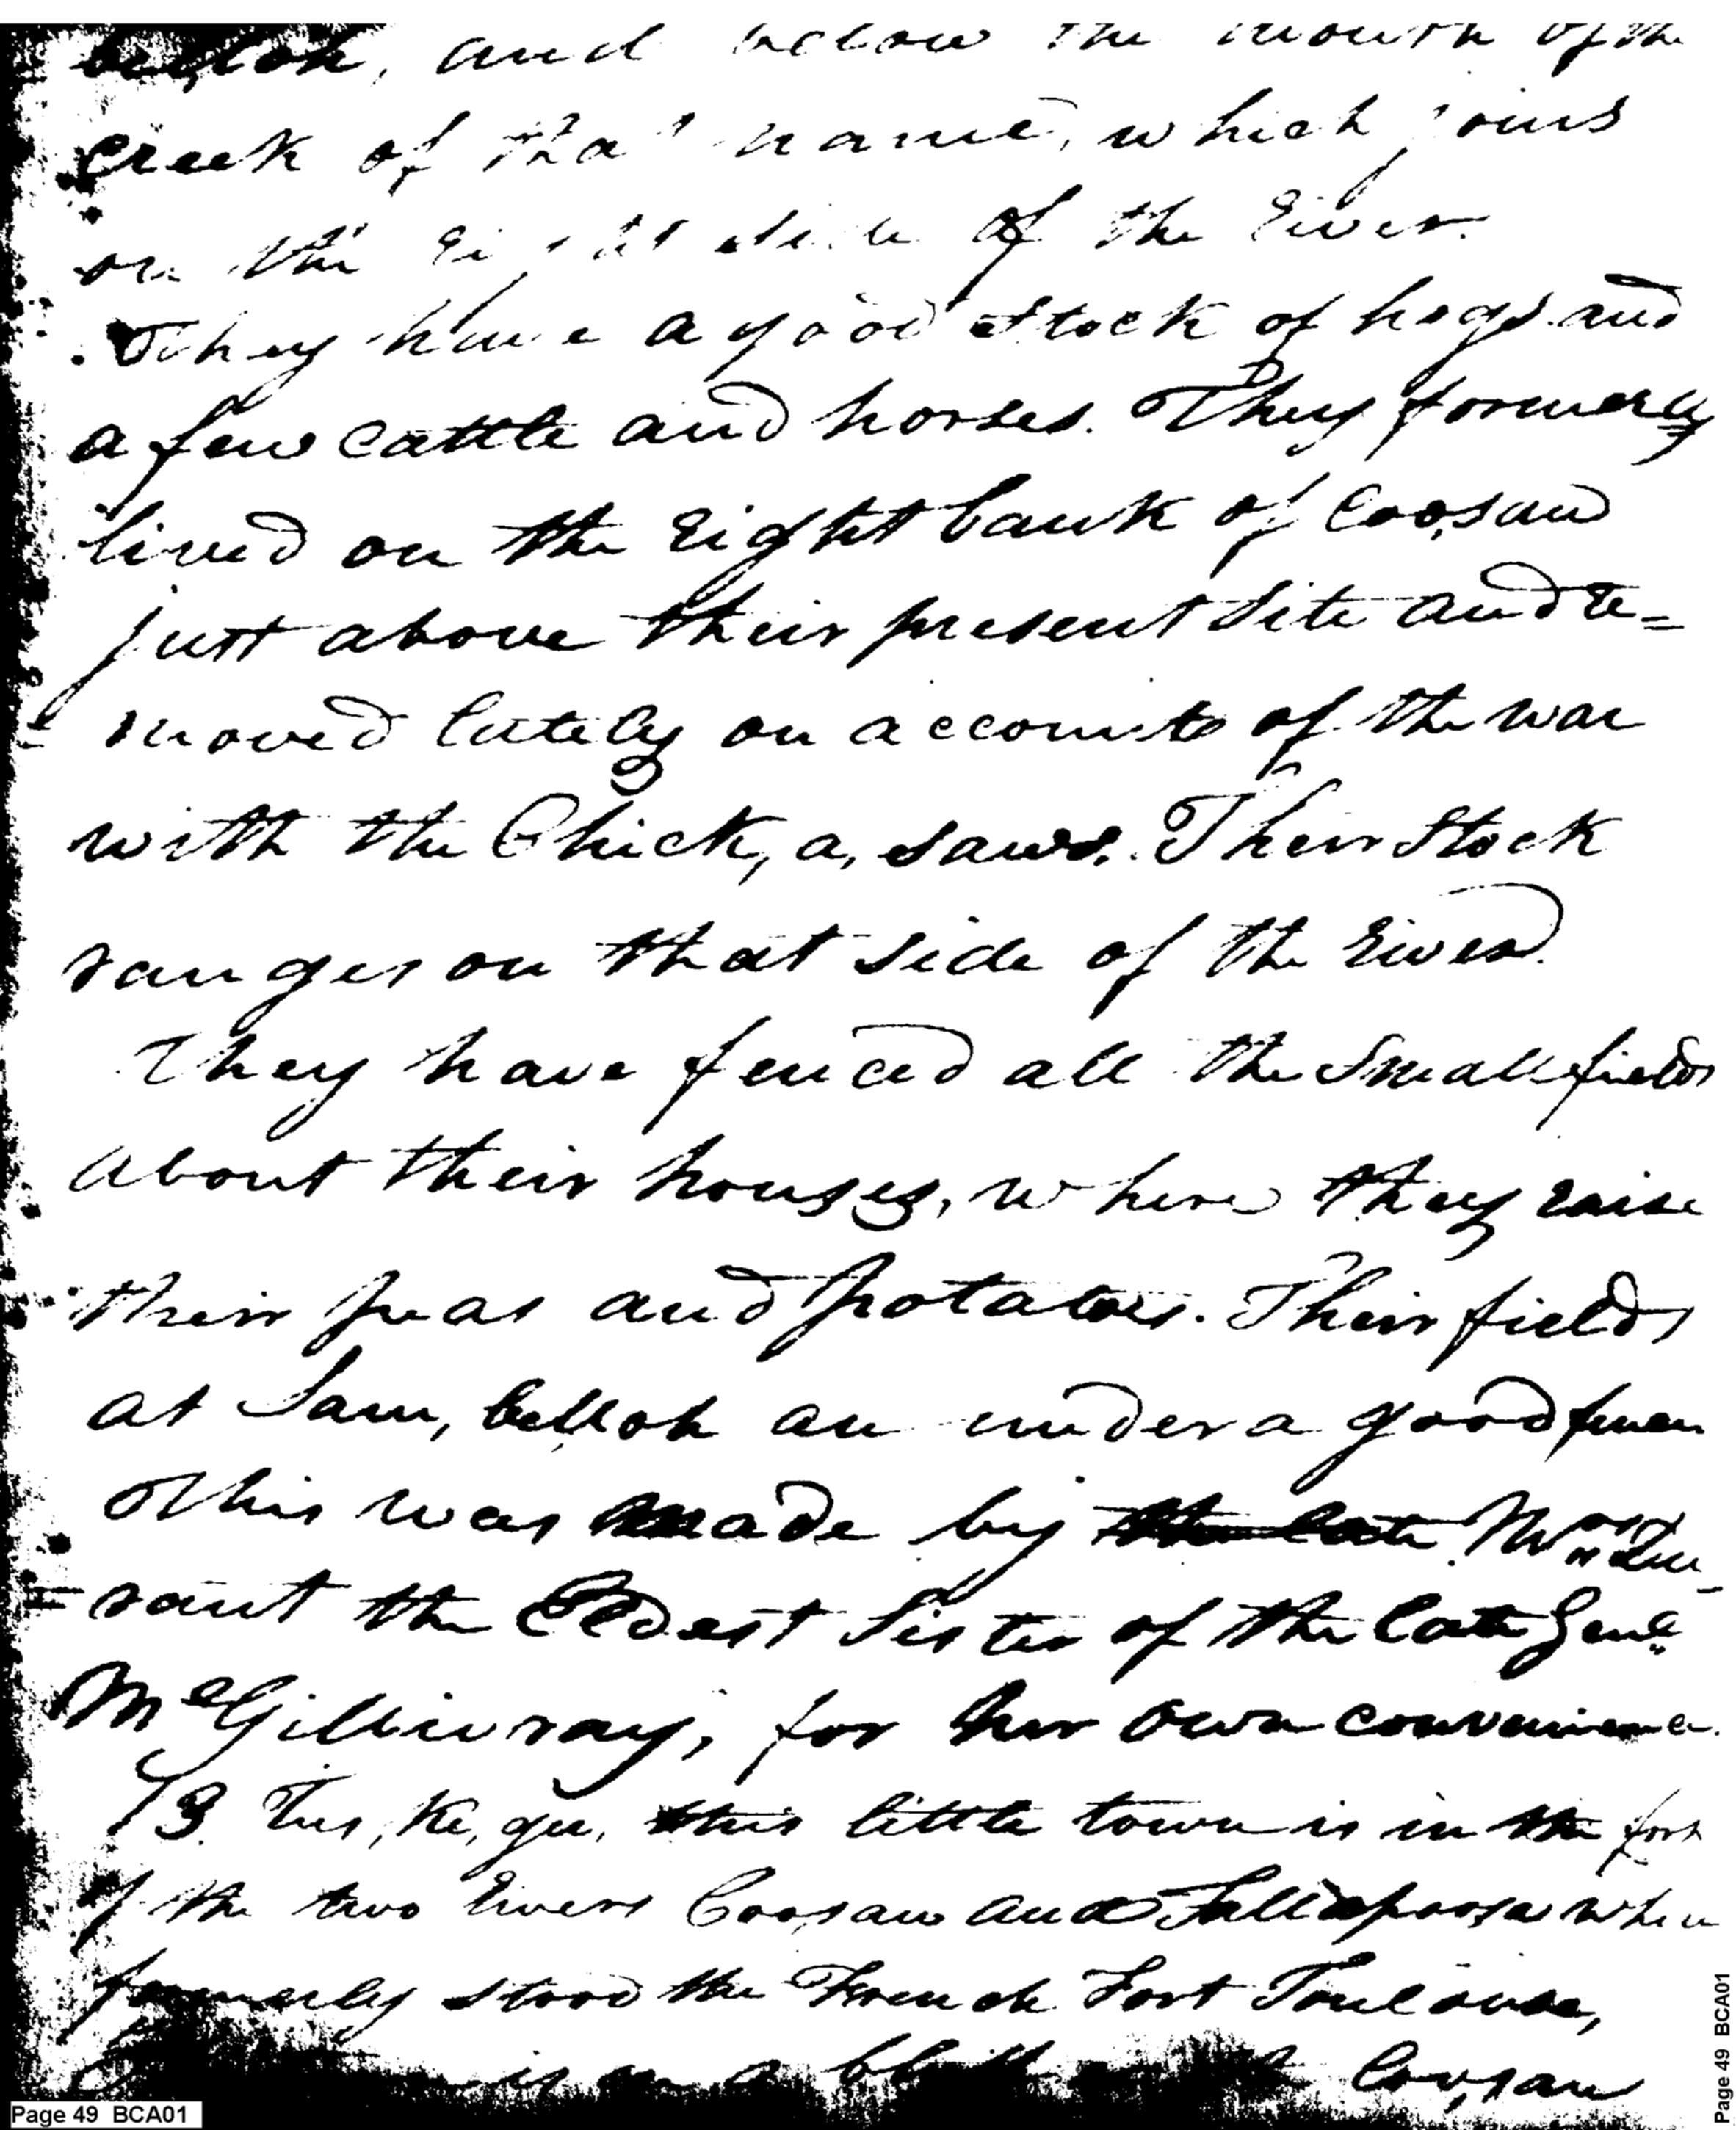 belloh, and below the mouth of the
creek of that name, which joins
on the right side of the river.
They have a good stock of hogs and
a few cattle and horses. They formerly
lived on the right bank of Coosau
just above their present site and re=
=moved lately on accounts of the war
with the Chick, a, saws. Their stock
ranges on that side of the river.
They have fenced all the small fields
about their houses, where they raise
their peas and potatoes. Their fields
at Sam, belloh are under a good fence
This was made by the late Mrs. Du-
=rant the Eldest Sister of the late Genl.
McGillivray, for her own convenience.
13 Tus, ke, gee, this little town is in the fork
of the two rivers Coosau and Tallapoosa where
formerly stood the French Fort Toulouse,
is on a bluff Coosau
Page 49 BCA01
Page 49 BCA01